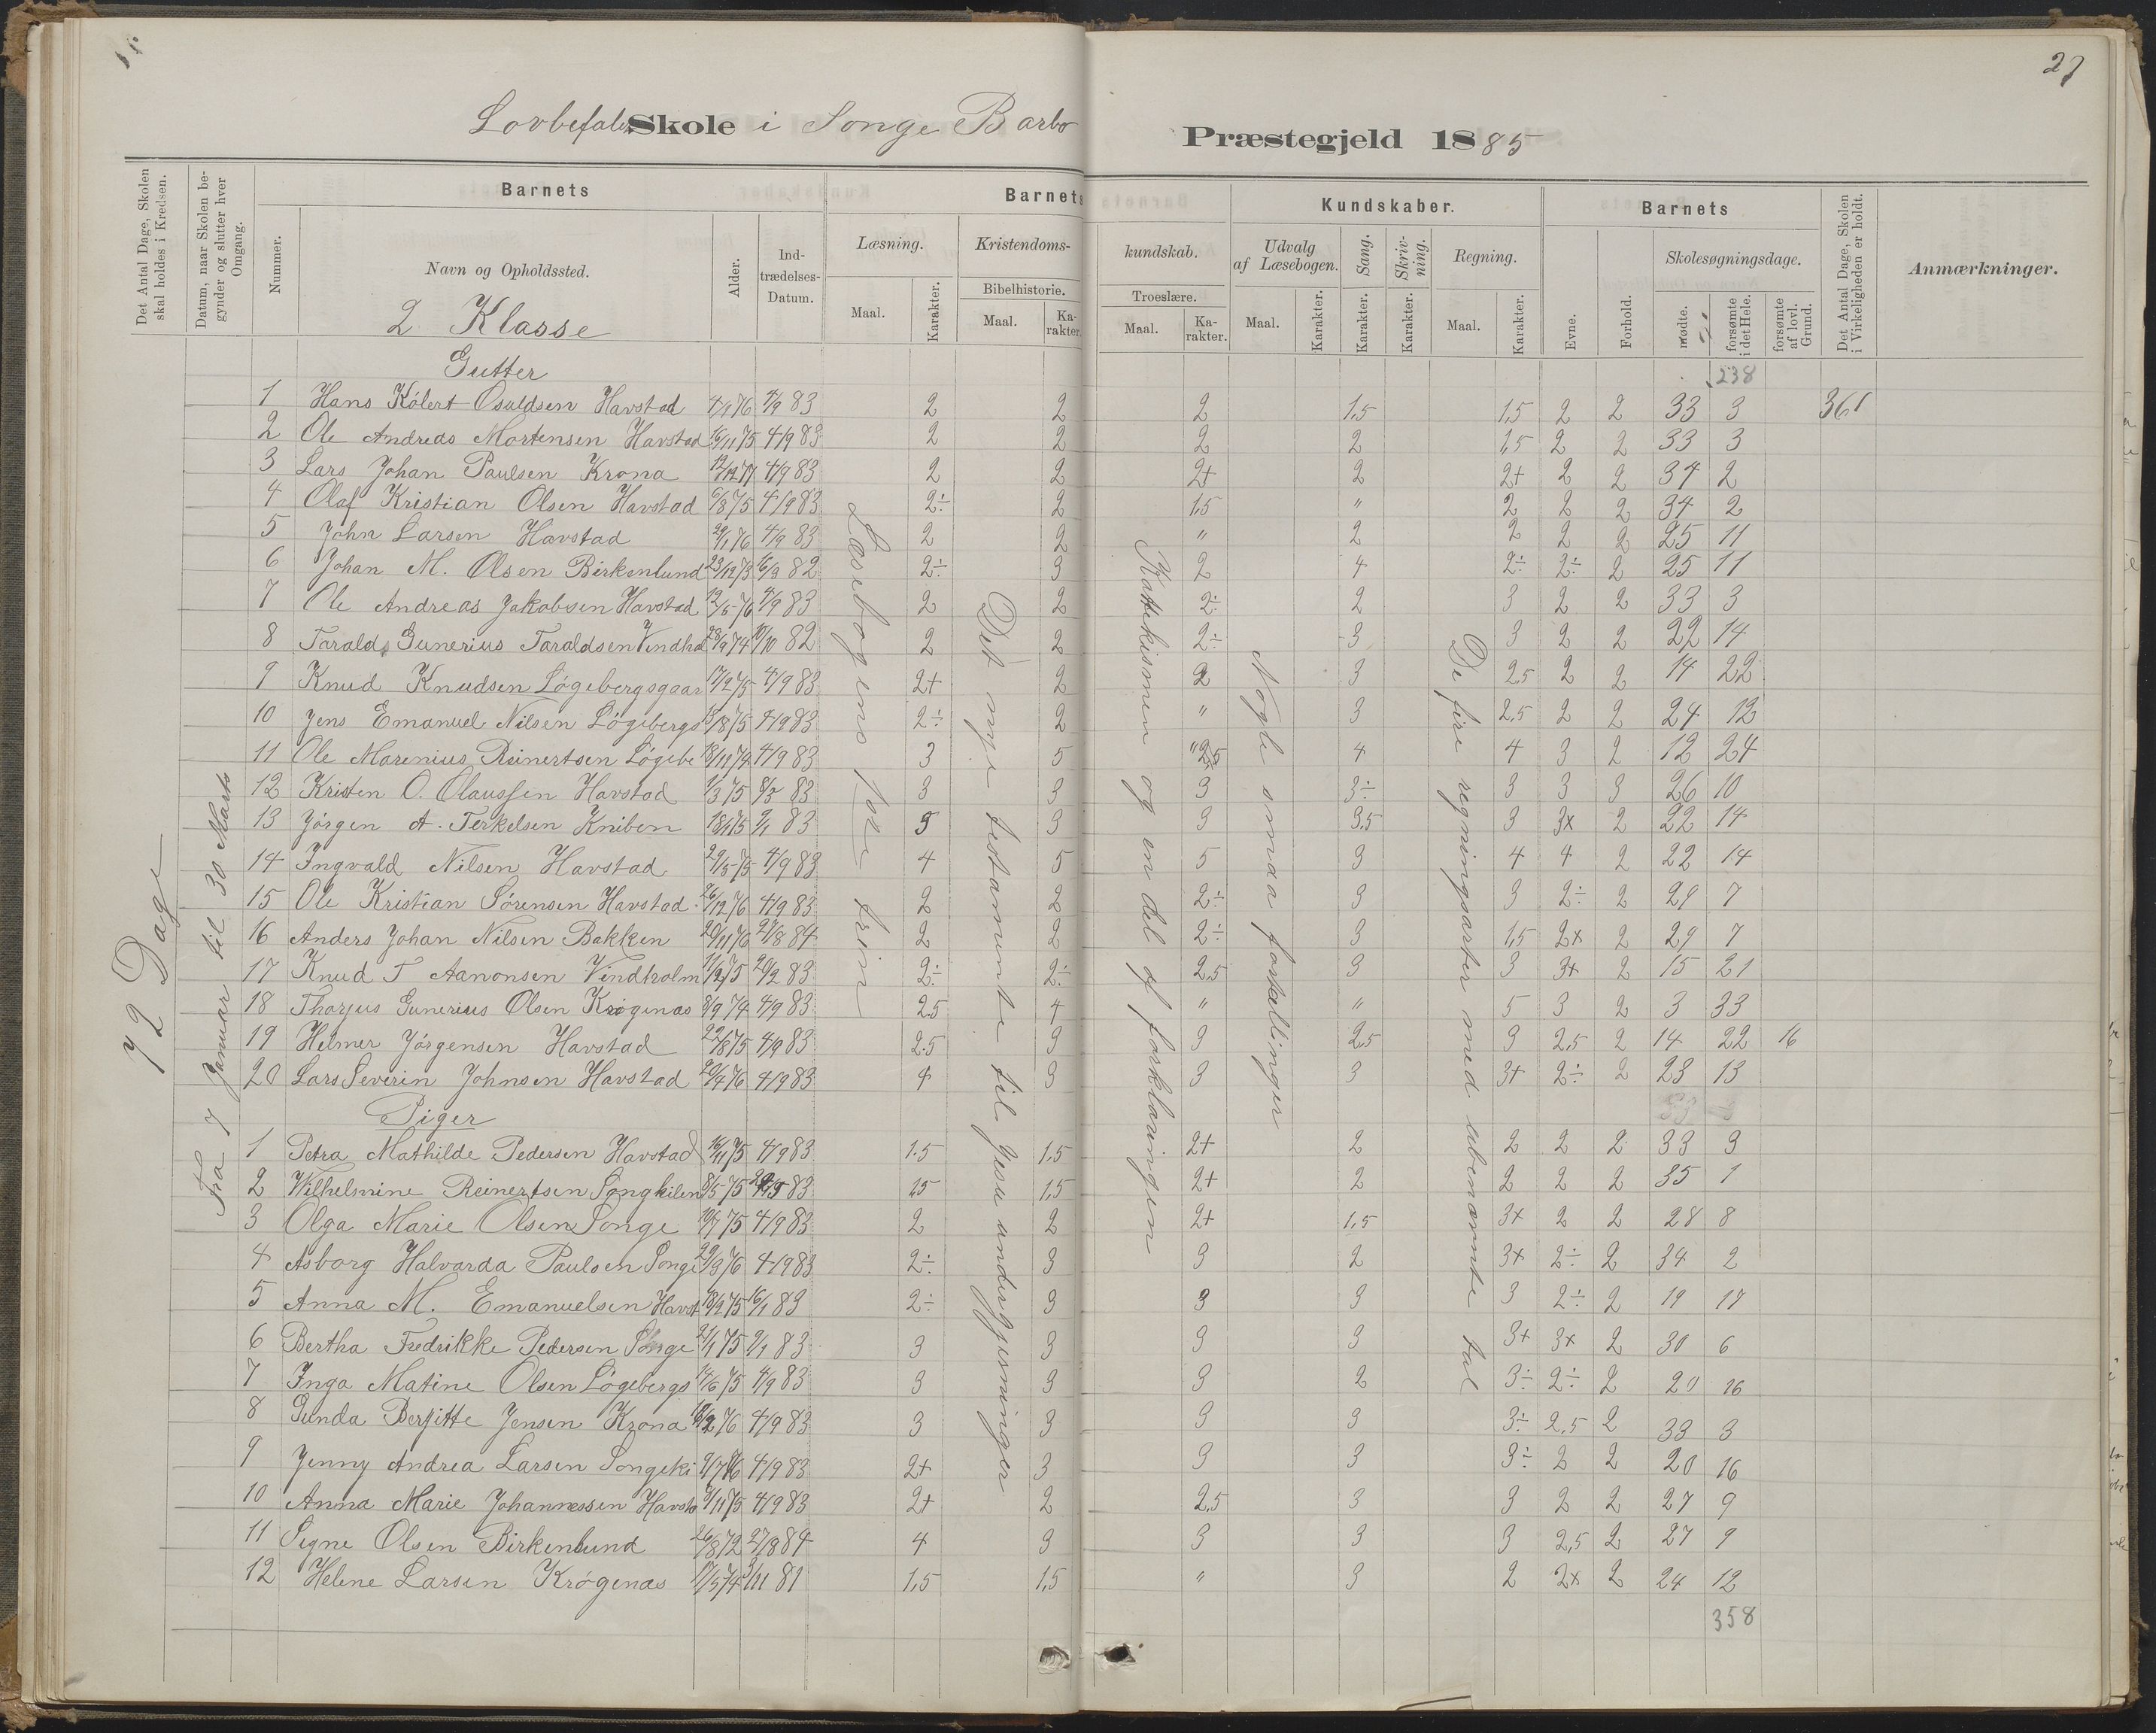 27
Lovbefalet Skole i Songe Barbo Præstegjeld 1885
Det Antal Dage, Skolen skal holdes i Kredsen.
Datum, naar Skolen begynder og slutter hver Omgang.
Barnets
Nummer.
Navn og Opholdssted.
Alder.
Indtrædelses-Datum.
Barnets Kundskaber.
Læsning.
Maal.
Karakter.
Kristendomskundskab.
Bibelhistorie.
Maal.
Karakter.
Troeslære.
Maal.
Karakter.
Udvalg af Læsebogen.
Maal.
Karakter.
Sang.
Karakter.
Skrivning.
Karakter.
Regning.
Maal.
Karakter.
Barnets
Evne.
Forhold.
Skolesøgningsdage.
mødte.
forsømte i det Hele.
forsømte af lovl. Grund.
Det Antal Dage, Skolen i Virkeligheden er holdt.
Anmærkninger.
72 Dage
Fra 7 Januar til 30 Marts
Læsebogens 1ste trin
Det nye testamente til Jesu undergjerninger
Kattekismen og en del af forklaringen
Nogle smaa fortællinger
De fire regningsarter med ubenævnte tal
2 Klasse
Gutter
238
1 Hans Kølert Osuldsen Havstad 4/9 83 2 2 2 1,5 1,5 2 2 33 3 361
2 Ole Andreas Mortensen Havstad 16/11 75 4/9 83 2 2 2 2 1,5 2 2 33 3
3 Lars Johan Paulsen Krona 4/9 83 2 2 2+ 2 2+ 2 2 34 2
4 Olaf Kristian Olsen Havstad 6/8 75 4/9 83 2÷ 2 1,5 " 2 2 2 34 2
5 John Larsen Havstad 29/1 76 4/9 83 2 2 " 2 2 2 2 25 11
6 Johan M. Olsen Birkenlund 23/12 73 16/3 82 2÷ 3 2 4 2÷ 2÷ 2 25 11
7 Ole Andreas Jakobsen Havstad 12/5 76 4/9 83 2 2 2÷ 2 3 2 2 33 3
8 Taralds Gunerius Taraldsen Vindhol 28/9 74 10/10 82 2 2 2÷ 3 3 2 2 22 14
9 Knud Knudsen Løgebergsgaar 17/2 75 4/9 83 2+ 2 2 3 2,5 2 2 14 22
10 Jens Emanuel Nilsen Løgebergs 4/9 83 2÷ 2 " 3 2,5 2 2 24 12
11 Ole Marenius Reinertsen Løgebe 18/11 74 4/9 83 3 5 " 2,5 4 4 3 2 12 24
12 Kristen O. Olaussen Havstad 1/3 75 8/5 83 3 3 3 3÷ 3 3 3 26 10
13 Jørgen A. Terkelsen Kniben 18/1 75 9/1 83 3 3 3 3,5 3 3+ 2 22 14
14 Ingvald Nilsen Havstad 29/5 75 4/9 83 4 5 5 3 4 4 2 22 14
15 Ole Kristian Sørensen Havstad 26/12 76 4/9 83 2 2 2÷ 3 3 2÷ 2 29 7
16 Anders Johan Nilsen Bakken 20/11 76 27/8 84 2 2 2÷ 3 1,5 2+ 2 29 7
17 Knud T Aanonsen Vindholm 11/12 75 20/2 83 2÷ 2÷ 2,5 3 3 3+ 2 15 21
18 Thorjus Gunerius Olsen Krøgenas 8/9 74 4/9 83 2,5 4 " " 5 3 2 3 33
19 Helmer Jørgensen Havstad 22/8 75 4/9 83 2,5 3 3 2,5 3 2,5 2 14 22 16
20 Lars Severin Johnsen Havstad 20/4 76 4/9 83 4 3 3 3 3+ 2÷ 2 23 13
Piger
1 Petra Mathilde Pedersen Havstad 16/11 75 4/9 83 1.5 1,5 2+ 2 2 2 2 33 3
2 Wilhelmine Reinertsen Songkilen 8/5 75 83 1,5 1,5 2+ 2 2 2 2 35 1
3 Olga Marie Olsen Songe 10/7 75 4/9 83 2 2 2+ 1,5 3+ 2 2 28 8
4 Asborg Halvarda Paulsen Songe 29/3 76 4/9 83 2÷ 3 3 2 3+ 2÷ 2 34 2
5 Anna M. Emanuelsen Havst 18/2 75 16/1 83 2÷ 3 3 3 3 2÷ 2 19 17
6 Bertha Fredrikke Pedersen Songe 21/1 75 9/1 83 3 3 3 3 3+ 3+ 2 30 6
7 Inga Matine Olsen Løgebergs 14/6 75 4/9 83 3 3 3 2 3÷ 2÷ 2 20 16
8 Gunda Berjitte Jensen Krona 76 4/9 83 3 3 3 3 3÷ 2,5 2 33 3
9 Jenny Andrea Larsen Songeki 4/9 83 2+ 3 3 3 3÷ 2 2 20 16
10 Anna Marie Johannessen Havsta 4/9 83 2+ 2 2,5 3 3 2 2 27 9
11 Signe Olsen Birkenlund 26/8 72 27/8 84 4 3 3 3 3 2,5 2 27 9
12 Helene Larsen Krøgenas 17/5 74 81 1,5 1,5 " 3 2 2+ 2 24 12
358